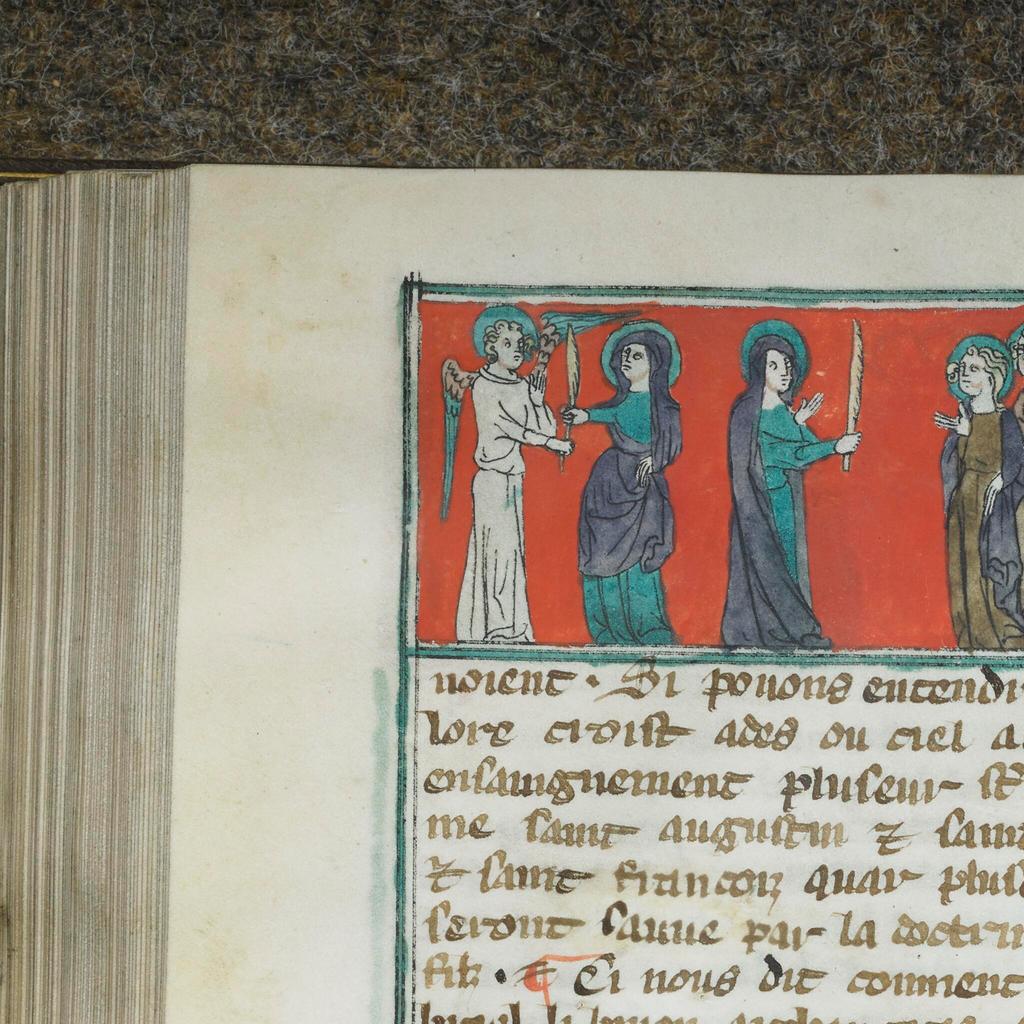 uoient · Si pouons entendr
lore croist ades ou ciel a
ensaingnement pluseur st
me saint augustin ⁊ saint
⁊ saint francois quar plus
seront sauue par la doctrin
filz · ¶ Ci nous dit comment